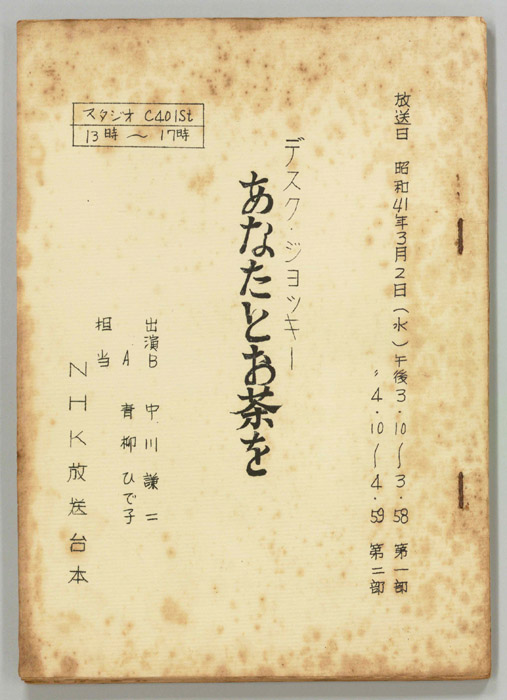 放送日 昭和41年3月2日(水)午後3.10〜3.58 第一部
〃4.10〜4.59 第二部
デスク・ジョッキー
あなたとお茶を
スタジオ C401St
13時〜17時
出演B 中川謙二
A 青柳ひで子
担当
NHK放送台本